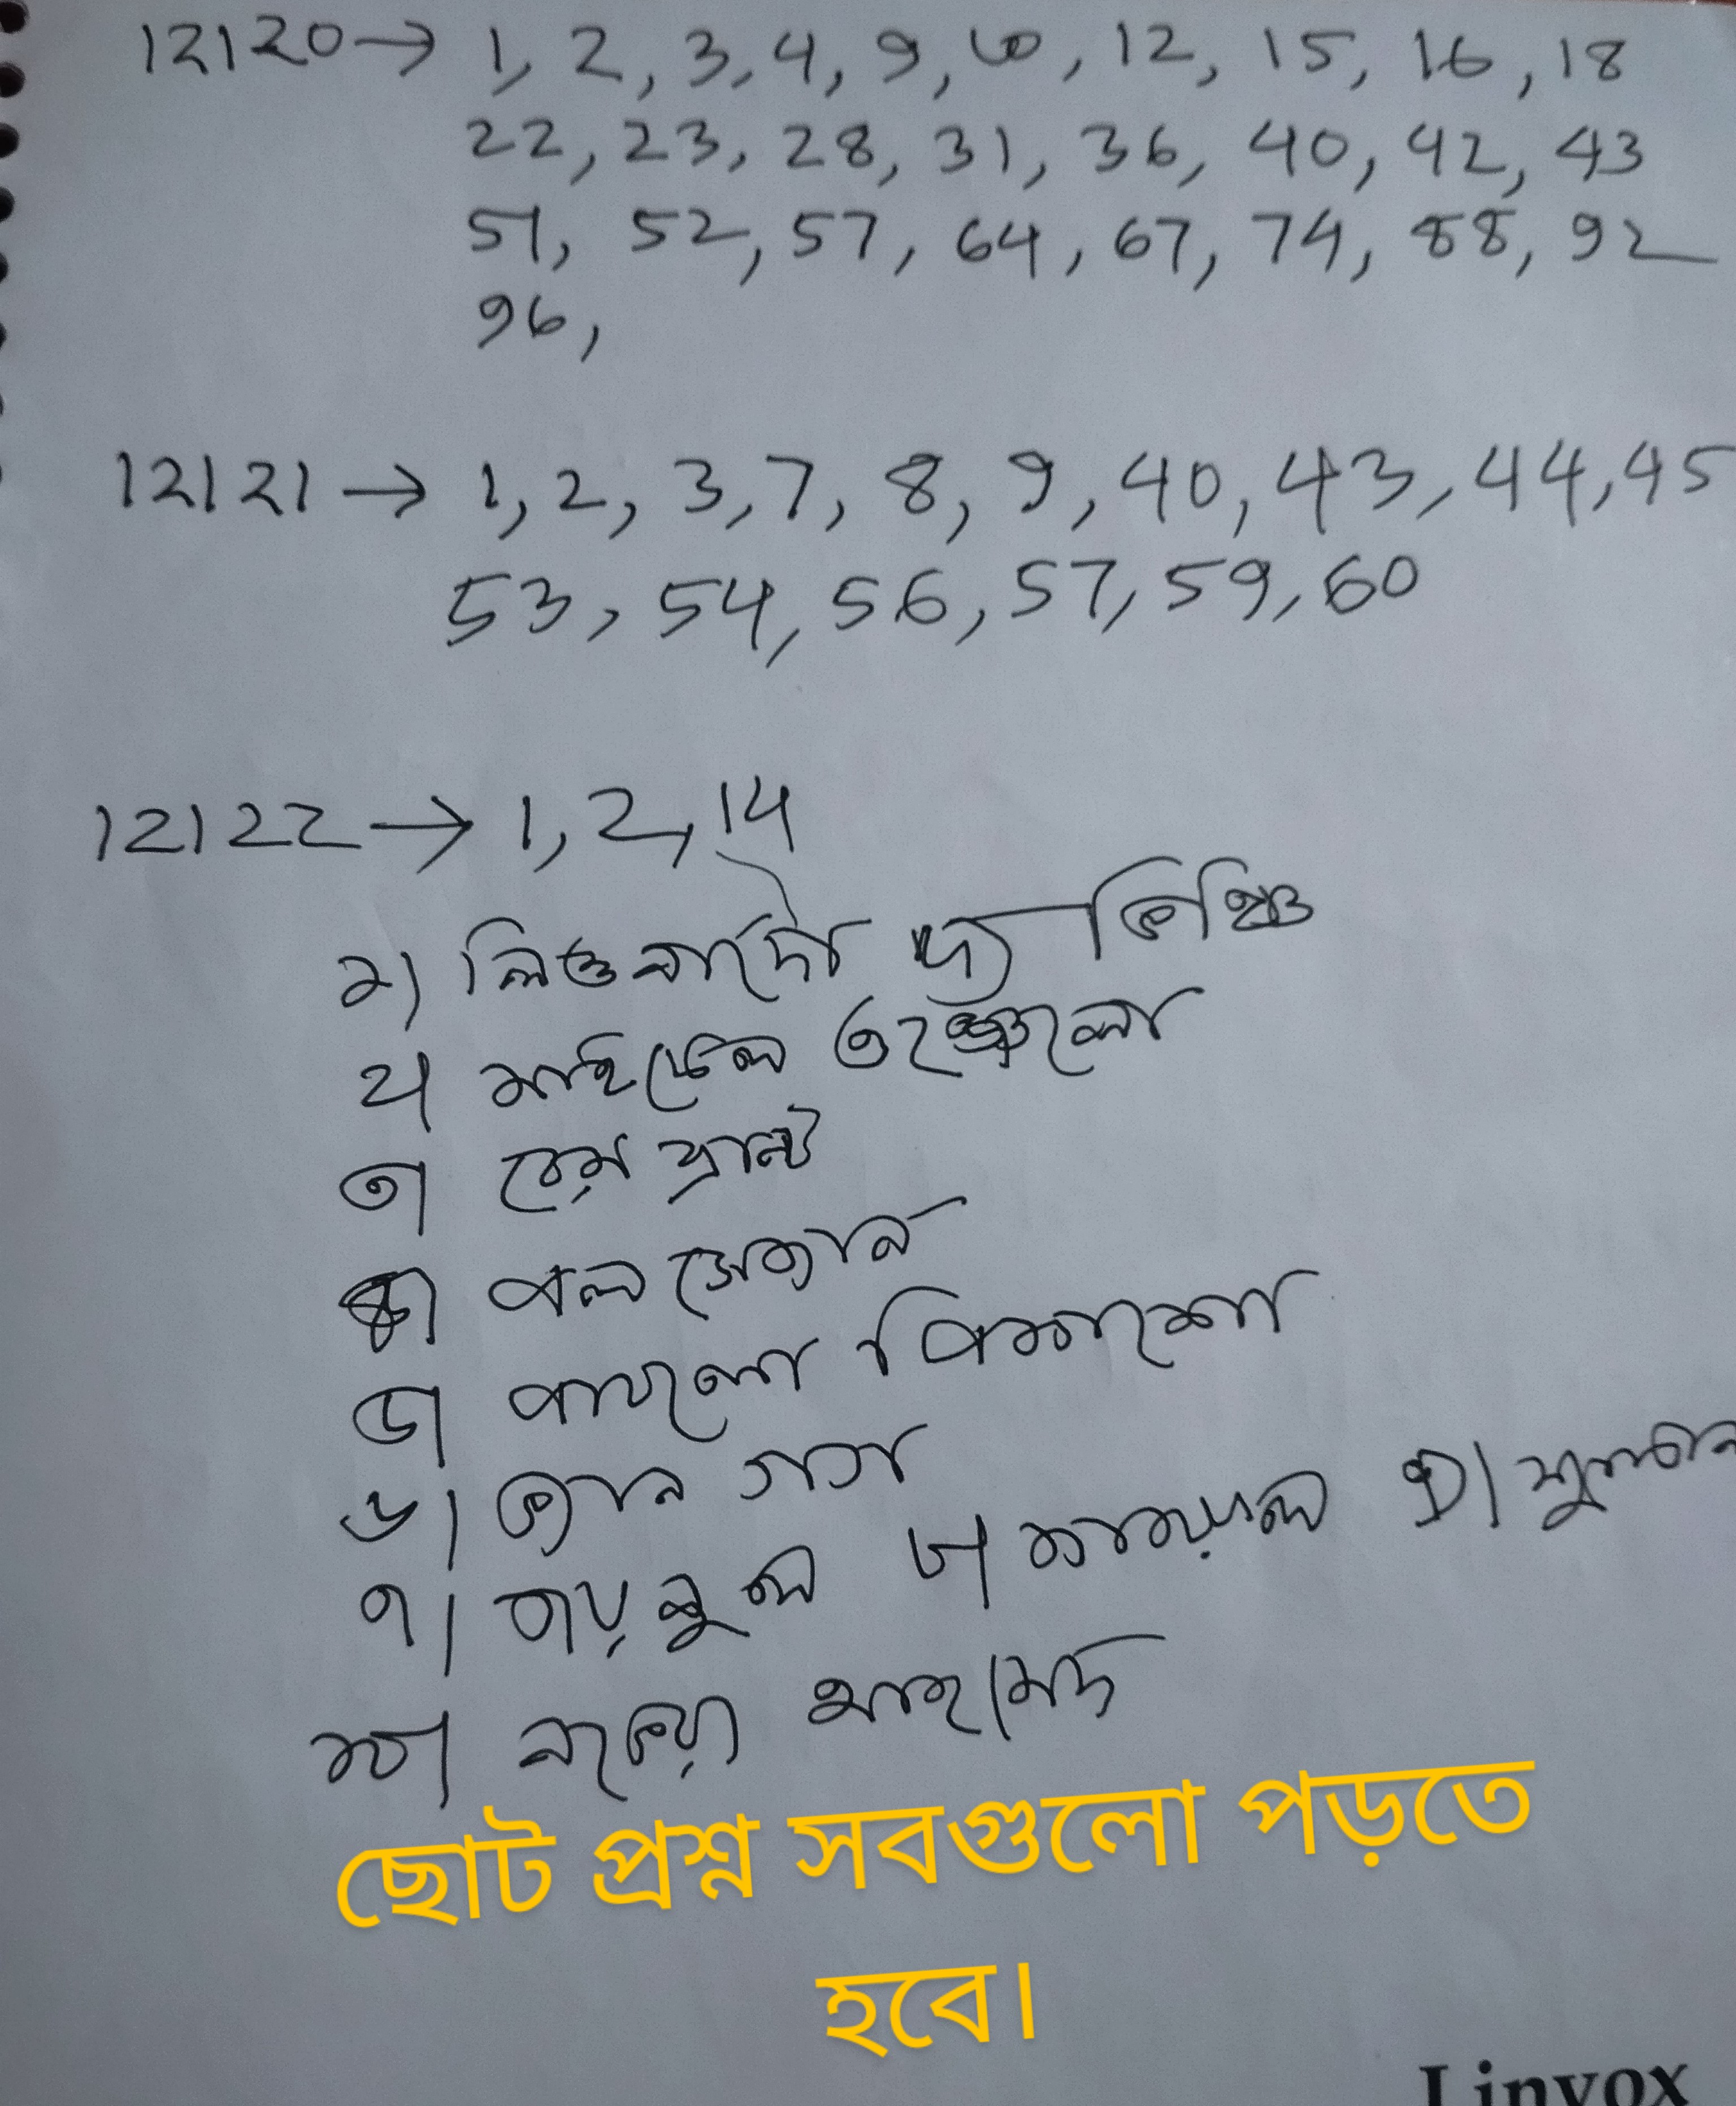 12120 → 1, 2, 3, 4, 9, 10, 12, 15, 16, 18
22, 23, 28, 31, 36, 40, 42, 43
51, 52, 57, 64, 67, 74, 88, 92
96,
12121 → 1, 2, 3, 7, 8, 9, 40, 43, 44, 45
53, 54, 56, 57, 59, 60
12122 → 1, 2, 14
১) লিওনার্দো দ্য ভিঞ্চি
২। মাইকেল
৩। রেমব্রান্ট
৪। পল সেজান
৫। পাবলো পিকাসো
৬। ভ্যান গগ
৭। জয়নুল ৮। কামরুল ৯। সুলতান
১০। নভেরা আহমেদ
ছোট প্রশ্ন সবগুলো পড়তে
হবে।
Linvox